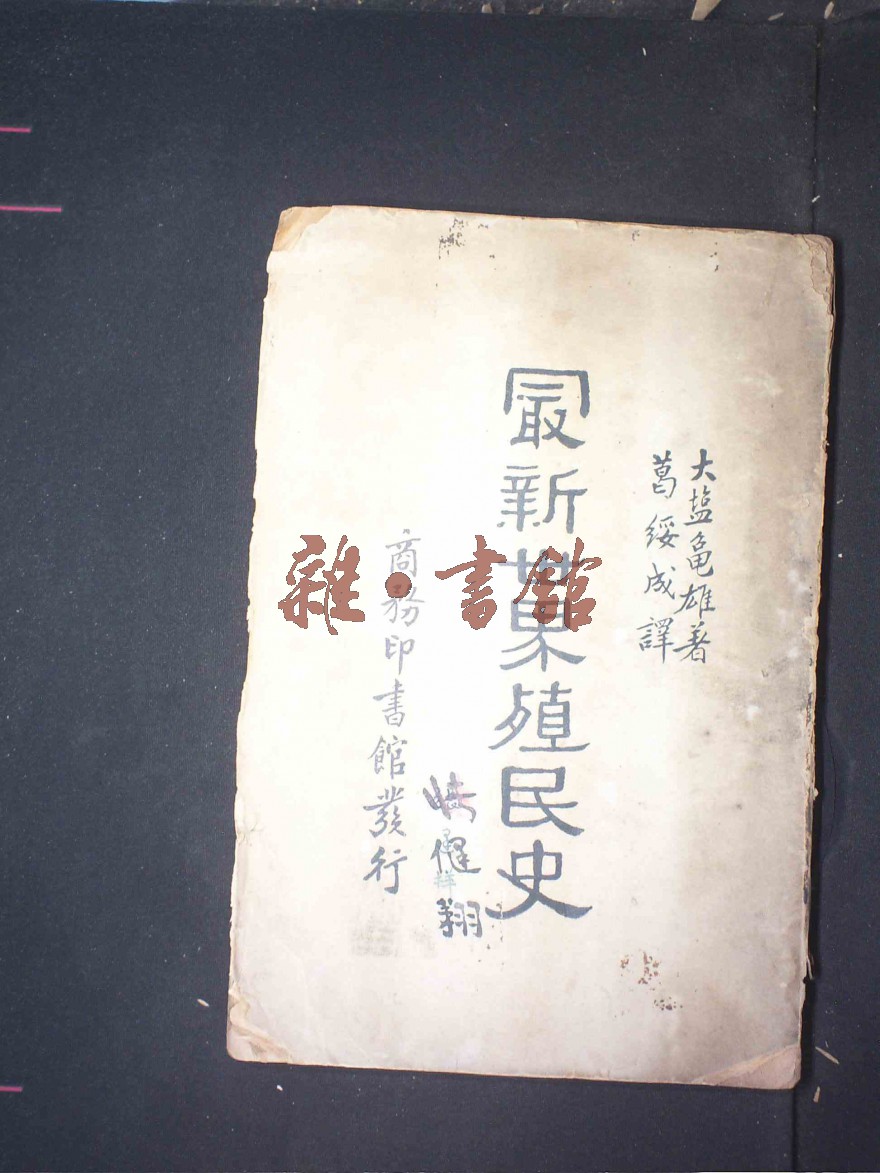 大塩亀雄著
葛綏成譯
最新世界殖民史
商務印書館發行
健翔
雜·書館